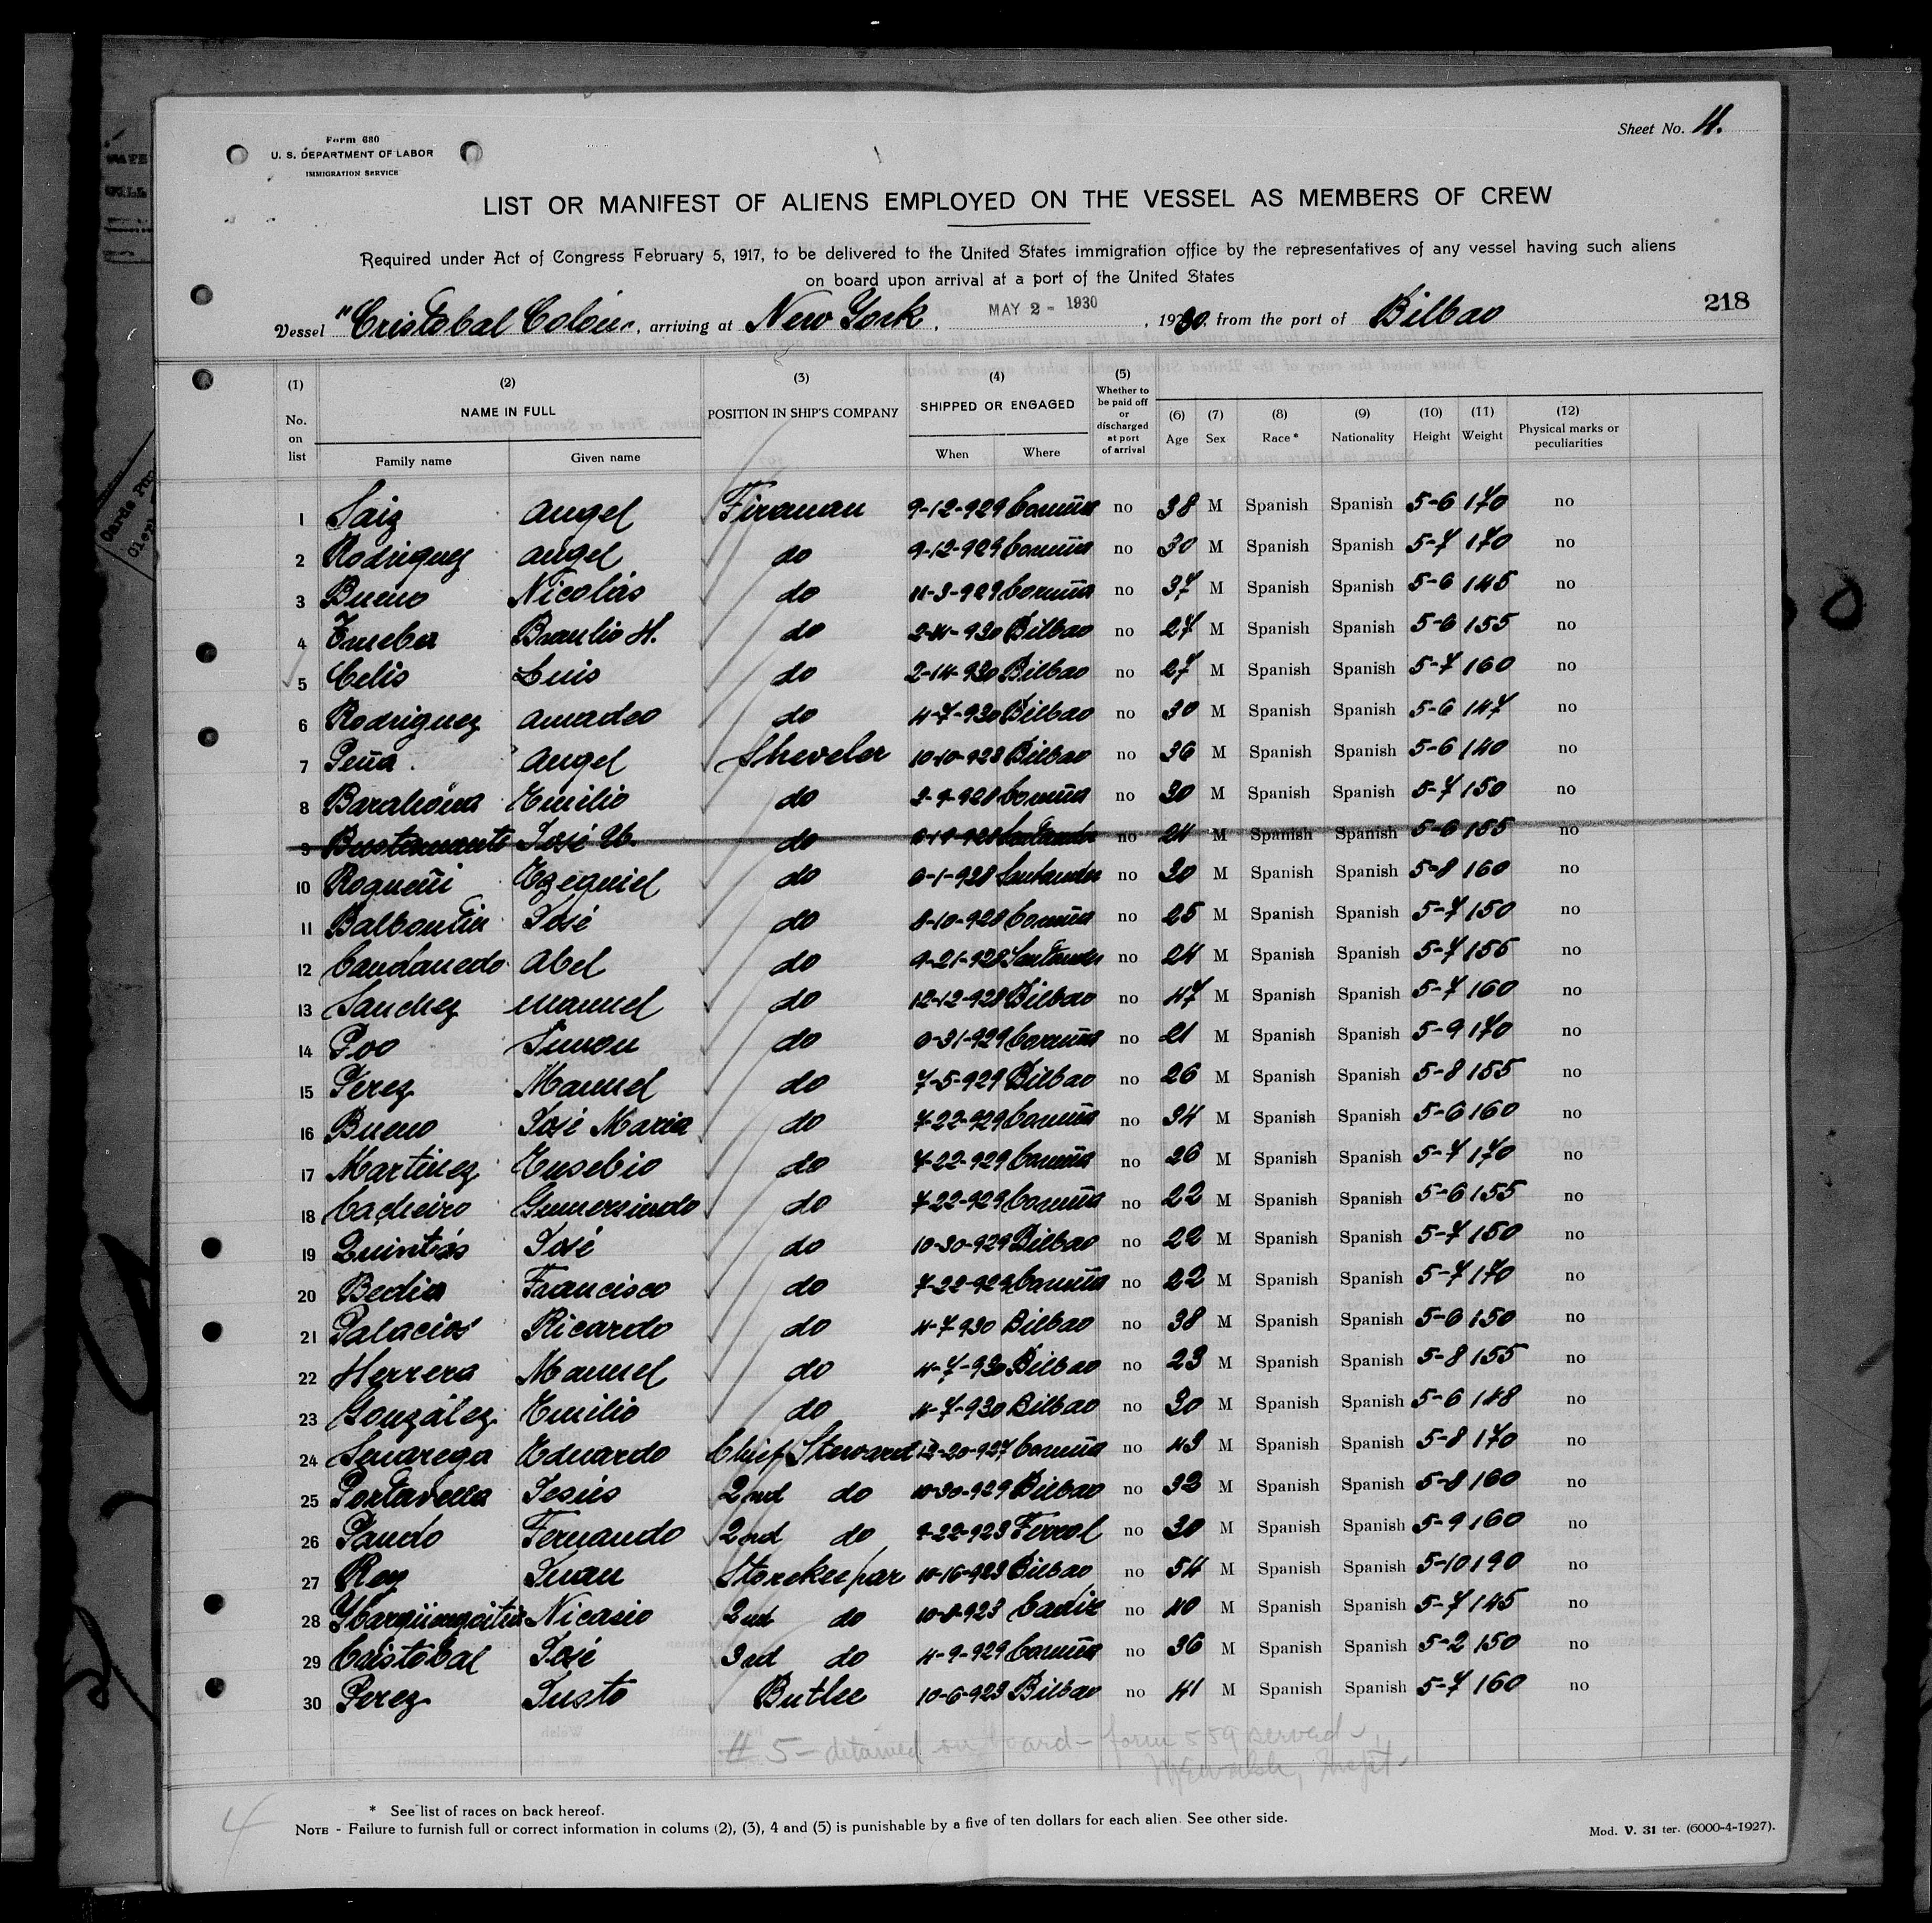 Form 680
U. S. DEPARTMENT OF LABOR
IMMIGRATION SERVICE
Sheet No. 4.
LIST OR MANIFEST OF ALIENS EMPLOYED ON THE VESSEL AS MEMBERS OF CREW
Required under Act of Congress February 5, 1917, to be delivered to the United States immigration office by the representatives of any vessel having such aliens
on board upon arrival at a port of the United States
218
Vessel "Cristobal Colon", arriving at New York, MAY 2 - 1930, 1930, from the port of Bilbao
(1) No. on list (2) NAME IN FULL Family name Given name (3) POSITION IN SHIP'S COMPANY (4) SHIPPED OR ENGAGED When Where (5) Whether to be paid off or discharged at port of arrival (6) Age (7) Sex (8) Race * (9) Nationality (10) Height (11) Weight (12) Physical marks or peculiarities
1 Saiz Angel Fireman 9-12-929 Coruña no 38 M Spanish Spanish 5-6 170 no
2 Rodriguez Angel do 9-12-929 Coruña no 30 M Spanish Spanish 5-7 170 no
3 Bueno Nicolás do 11-3-929 Coruña no 37 M Spanish Spanish 5-6 145 no
4 Braulio H. do 930 Bilbao no 27 M Spanish Spanish 5-6 155 no
5 Celis Luis do 2-14-930 Bilbao no 27 M Spanish Spanish 5-7 160 no
6 Rodriguez Amadeo do 4-7-930 Bilbao no 30 M Spanish Spanish 5-6 147 no
7 Peña Angel Sheveler 10-10-928 Bilbao no 36 M Spanish Spanish 5-6 140 no
8 Barahona Emilio do 928 Coruña no 30 M Spanish Spanish 5-7 150 no
9 Bustamante José do 928 Santander no 24 M Spanish Spanish 5-6 155 no
10 Roqueñi Ezequiel do 928 Santander no 30 M Spanish Spanish 5-8 160 no
11 Balbontin José do 8-10-928 Coruña no 25 M Spanish Spanish 5-7 150 no
12 Candanedo Abel do 9-21-928 Santander no 24 M Spanish Spanish 5-7 155 no
13 Sanchez Manuel do 12-12-928 Bilbao no 47 M Spanish Spanish 5-7 160 no
14 Poo Simon do 929 Coruña no 21 M Spanish Spanish 5-9 170 no
15 Perez Manuel do 7-5-929 Bilbao no 26 M Spanish Spanish 5-8 155 no
16 Bueno José Maria do 7-22-929 Coruña no 34 M Spanish Spanish 5-6 160 no
17 Martinez Eusebio do 7-22-929 Coruña no 26 M Spanish Spanish 5-7 170 no
18 Cacheiro Gumersindo do 7-22-929 Coruña no 22 M Spanish Spanish 5-6 155 no
19 Quintás José do 10-30-929 Bilbao no 22 M Spanish Spanish 5-7 150 no
20 Bedia Francisco do 7-22-929 Coruña no 22 M Spanish Spanish 5-7 170 no
21 Palacios Ricardo do 4-7-930 Bilbao no 38 M Spanish Spanish 5-6 150 no
22 Herrera Manuel do 4-7-930 Bilbao no 23 M Spanish Spanish 5-8 155 no
23 González Emilio do 4-7-930 Bilbao no 30 M Spanish Spanish 5-6 148 no
24 Eduardo Chief Steward 12-20-927 Coruña no 43 M Spanish Spanish 5-8 170 no
25 Portavella Jesús 2nd do 10-30-929 Bilbao no 32 M Spanish Spanish 5-8 160 no
26 Pando Fernando 2nd do 923 Ferrol no 30 M Spanish Spanish 5-9 160 no
27 Rey Juan Storekeepar 10-16-923 Bilbao no 54 M Spanish Spanish 5-10 190 no
28 Nicasio 2nd do 10-8-923 Cadiz no 40 M Spanish Spanish 5-7 145 no
29 Cristobal José 3rd do 4-9-929 Coruña no 36 M Spanish Spanish 5-2 150 no
30 Perez Justo Butler 10-6-923 Bilbao no 41 M Spanish Spanish 5-7 160 no
# 5 - detained on board - form 559 served -
4
* See list of races on back hereof.
NOTE - Failure to furnish full or correct information in colums (2), (3), 4 and (5) is punishable by a five of ten dollars for each alien. See other side.
Mod. V. 31 ter. (6000-4-1927).